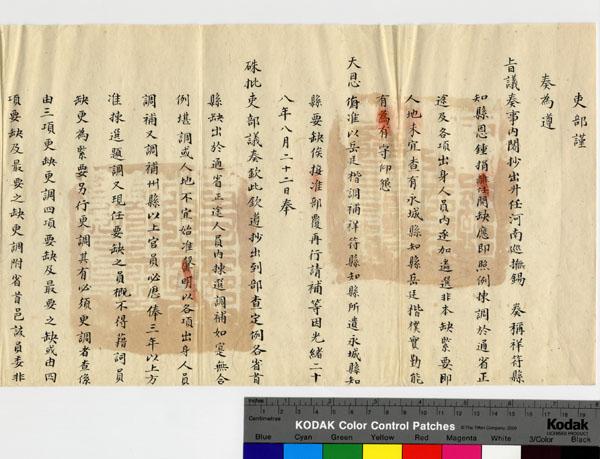 吏部謹
奏為遵
旨議奏事內閣抄出升任河南巡撫錫 奏稱祥符縣
知縣恩鍾捐離任開缺應即照例揀調於通省正
途及各項出身人員內逐加遴選非本缺緊要即
人地未宜查有永城縣知縣岳廷楷樸實勤能
有為有守仰懇
天恩俯准以岳廷楷調補祥符縣知縣所遺永城縣知
縣要缺俟接准部覆再行請補等因光緒二十
八年八月二十二日奉
硃批吏部議奏欽此欽遵抄出到部查定例各省首
縣缺出於通省正途人員內揀選調補如寔無合
例堪調或人地不宜始准聲明以各項出身人員
調補又調補州縣以上官員必歷俸三年以上方
准揀選題調又現任要缺之員概不得藉詞員
缺更為緊要另行更調其有必須更調者查係
由三項更缺更調四項要缺及最要之缺或由四
項要缺及最要之缺更調附省首邑該員委非
Inches
Centimetres
KODAK Color Control Patches
©The Tiffen Company, 2000
Kodak
LICENSED PRODUCT
Blue Cyan Green Yellow Red Magenta White 3/Color Black